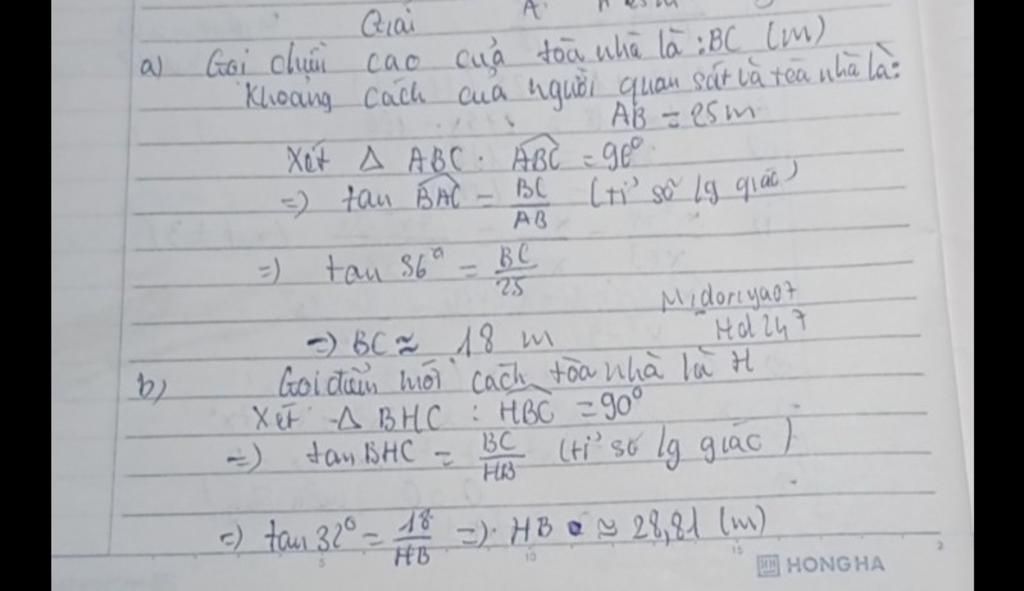 Giải
a) Gọi chiều cao của toà nhà là : BC (m)
Khoảng cách của người quan sát và toà nhà là:
AB = 25m
Xét Δ ABC. ABC = 90°
=) tan BAC = BC/AB (tỉ số lg giác)
=) tan 36° = BC/25
=) BC ≈ 18 m
Midoriya07
Hd247
b) Gọi điểm mới cách tòa nhà là H
Xét Δ BHC : HBC = 90°
=) tan BHC = BC/HB (tỉ số lg giác)
=) tan 32° = 18/HB =) HB ≈ 28,81 (m)
5 10 15 2
HH HONG HA